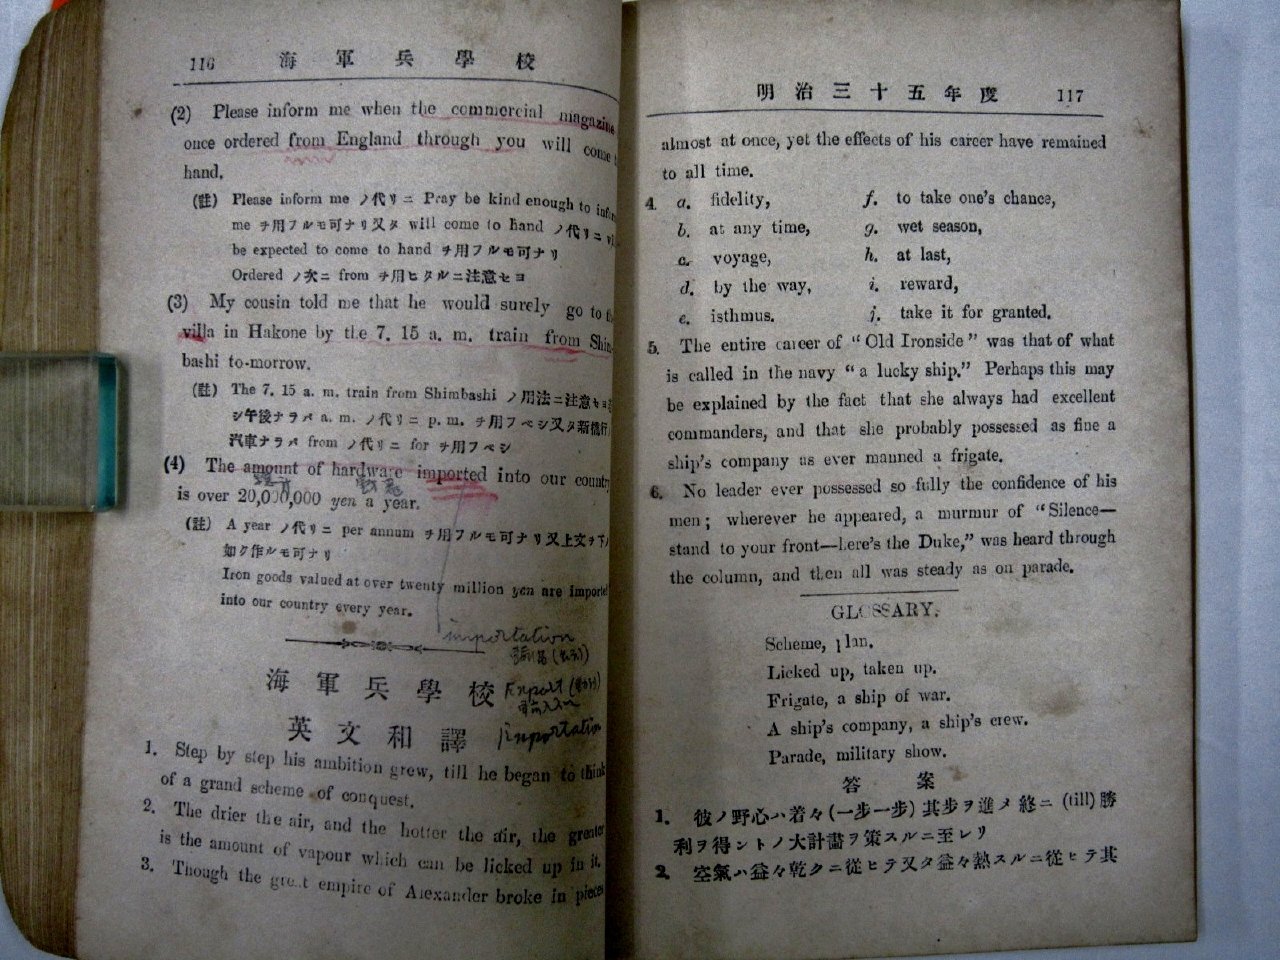 116 海軍兵學校
(2) Please inform me when the commercial magazine
once ordered from England through you will come
hand.
(註) Please inform me ノ代リニ Pray be kind enough to
me ヲ用フルモ可ナリ又タ will come to hand ノ代リニ
be expected to come to hand ヲ用フルモ可ナリ
Ordered ノ次ニ from ヲ用ヒタルニ注意セヨ
(3) My cousin told me that he would surely go to
villa in Hakone by the 7. 15 a. m. train from Shim-
bashi to-morrow.
(註) The 7. 15 a. m. train from Shimbashi ノ用法ニ注意セヨ
シ午後ナラバ a.m. ノ代リニ p.m. ヲ用フベシ又タ新橋行ノ
汽車ナラバ from ノ代リニ for ヲ用フベシ
(4) The amount of hardware imported into our country
is over 20,000,000 yen a year.
(註) A year ノ代リニ per annum ヲ用フルモ可ナリ又上文ヲ下ノ
如ク作ルモ可ナリ
Iron goods valued at over twenty million yen are imported
into our country every year.
importation
海軍兵學校
Export
英文和譯
Importation
1. Step by step his ambition grew, till he began to think
of a grand scheme of conquest.
2. The drier the air, and the hotter the air, the greater
is the amount of vapour which can be licked up in it.
3. Though the great empire of Alexander broke in pieces
明治三十五年度 117
almost at once, yet the effects of his career have remained
to all time.
4. a. fidelity, f. to take one's chance,
b. at any time, g. wet season,
c. voyage, h. at last,
d. by the way, i. reward,
e. isthmus. j. take it for granted.
5. The entire career of "Old Ironside" was that of what
is called in the navy "a lucky ship." Perhaps this may
be explained by the fact that she always had excellent
commanders, and that she probably possessed as fine a
ship's company as ever manned a frigate.
6. No leader ever possessed so fully the confidence of his
men; wherever he appeared, a murmur of "Silence—
stand to your front—here's the Duke," was heard through
the column, and then all was steady as on parade.
GLOSSARY.
Scheme, plan.
Licked up, taken up.
Frigate, a ship of war.
A ship's company, a ship's crew.
Parade, military show.
答案
1. 彼ノ野心ハ着々(一步一步)其步ヲ進メ終ニ (till) 勝
利ヲ得ントノ大計畵ヲ策スルニ至レリ
2. 空氣ハ益々乾クニ從ヒテ又タ益々熱スルニ從ヒテ其